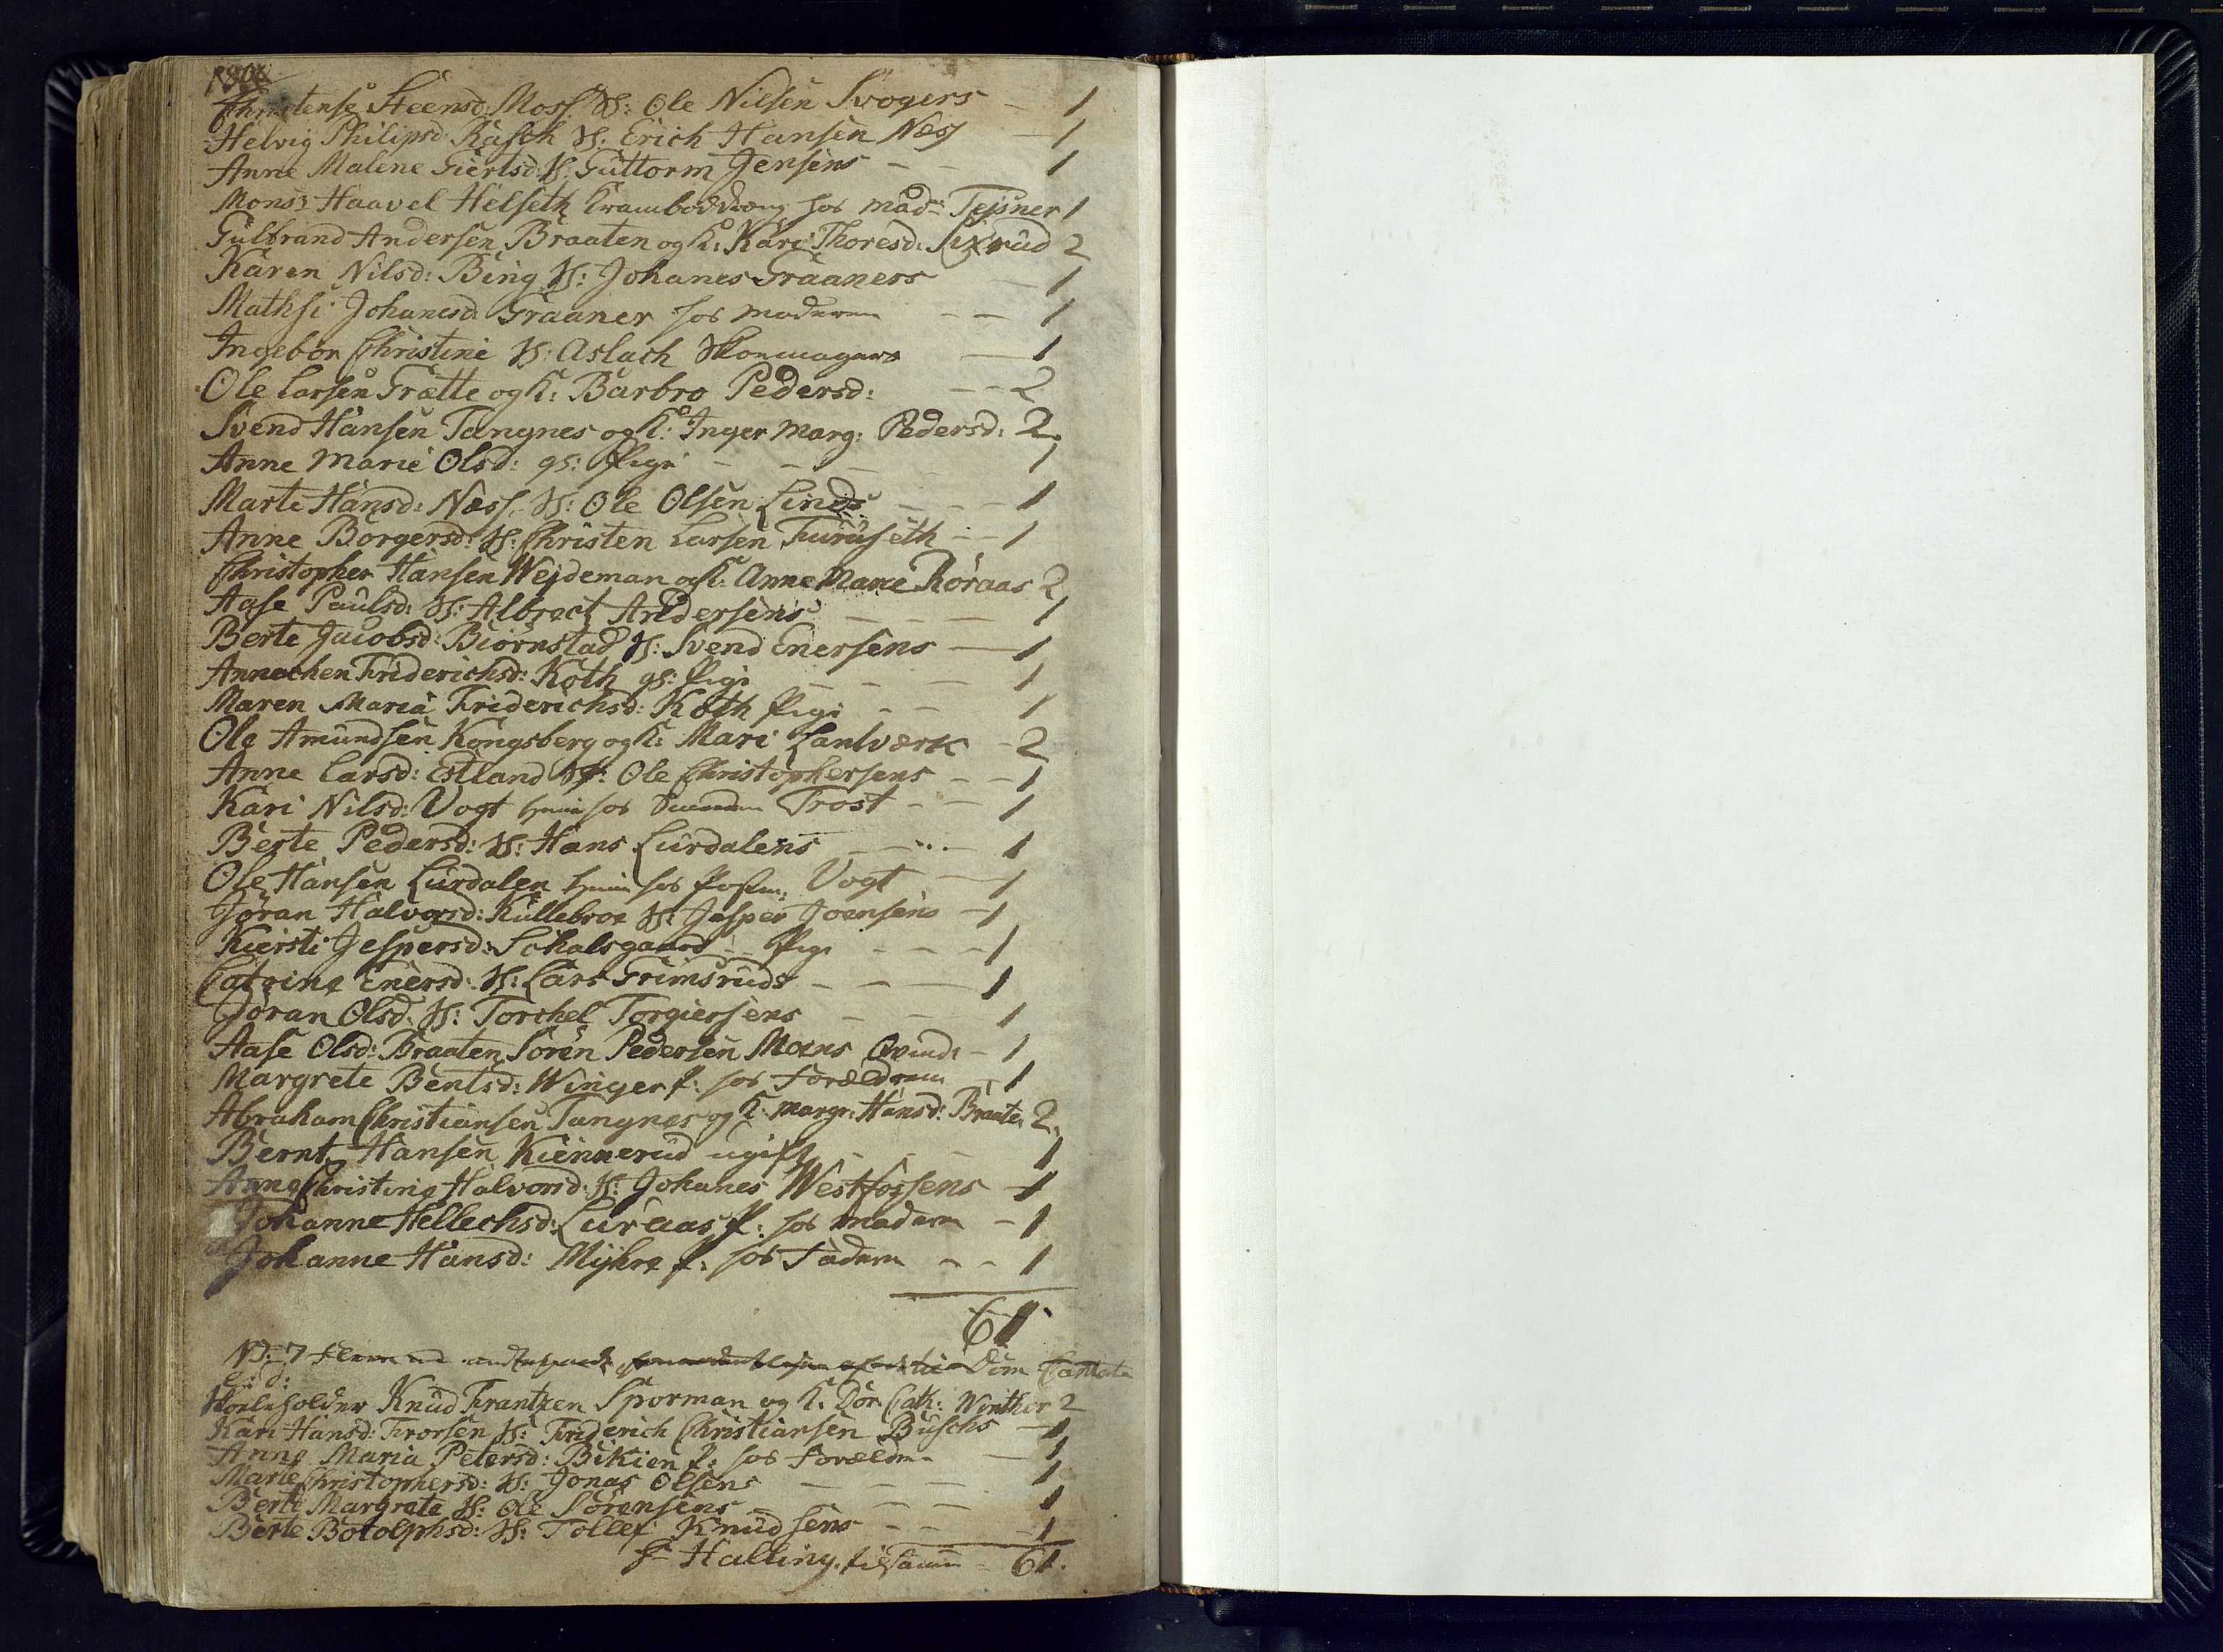 1808
Christense Steensd: Moss H: Ole Nilsen Svogers – 1
Helvig Philipsd. Rasch H: Erich Hansen Næs – 1
Anne Malene Giertsd: H: Guttorm Jensens – – 1
Mons: Haavel Helseth Kramboddreng hos mad: Tejsner 1
Gulbrand Andersen Braaten og K: Kari Thoresd: 2
Karen Nilsd: Bing H: Johanes Graaners – 1
Mathsi Johanesd: Graaner hos moderen – – 1
Ingebor Christine H: Aslach Skoemagers – 1
Ole Larsen Trætte og K: Barbro Pedersd: – – 2
Svend Hansen Tangnes og K: Inger Marg: Pedersd: 2.
Anne Marie Olsd: gs: Pige – – – – 1
Marte Hansd: Næss H: Ole Olsen Linds – – – 1
Anne Borgersd: H: Christen Larsen Furuseth – – 1
Christopher Hansen Wejdeman og K: Anne Marie Röraas 2
Aase Paulsd: H: Albrect Andersens – – – 1
Berte Jacobsd: Biörnstad H: Svend Enersens – 1
Annechen Friderichsd: Koth gs: Pige – – – 1
Maren Maria Friderichsd: Koth Pige – – 1
Ole Amundsen Kongsberg og K: Mari Lantværk – 2
Anne Larsd: Estland H: Ole Christophersens – – 1
Kari Nilsd: Vogt hos Trost – – 1
Berte Pedersd: H: Hans Lurdalens – – 1
Ole Hansen Lurdalen hos Vogt – 1
Jöran Halvorsd: Kullebroe H: Jesper Joensens – 1
Kiersti Jespersd: Schalsgaard – Pige – – – 1
Catrine Enersd: H: Lars Grimsruds – – – 1
Jöran Olsd: H: Torchel Torgiersens – – 1
Aase Olsd: Braaten Sören Pedersen Moens Qvinde – 1
Margrete Bentsd: Winger p: hos Forældrene – 1
Abraham Christiansen Tangnes og K: Margr: Hansd: Braaten 2.
Bernt Hansen Kiennerud ugift – – – 1
Anne Christine Halvorsd: H: Johanes Westfossens – 1
Johanne Hellechsd: Luraas p: hos moderen – 1
Johanne Hansd: Myhre p: hos Faderen – – 1
61.
NB: 7 Dom: Cantate
e: d:
Skoeleholder Knud Frantzen Sporman og K: Dor: Cath: Winther 2
Kari Hansd: Frorsen H: Friderich Christiansen Buschs – 1
Anne Maria Petersd: Bikien p: hos Forældre – 1
Marie Christophersd: H: Jonas Olsens – – – 1
Berte Margrete H: Ole Sörensens – – – 1
Berte Botolphsd: H: Tollef Knudsens – – – 1
Halling. tilsamen – 61.